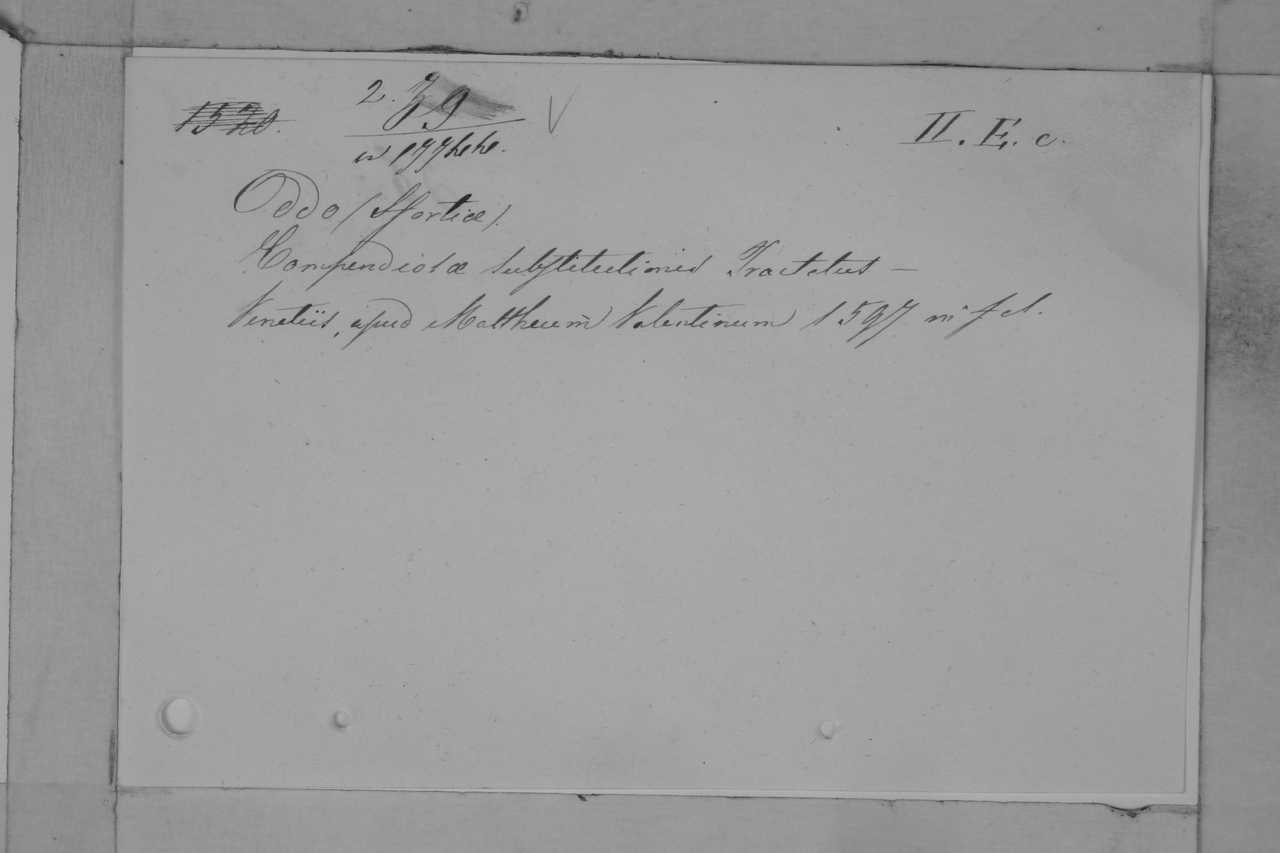 1520.
2. 39 V
II. E. c.
Oddo (Sfortiæ).
Compendiosæ substitutionis Tractatus —
Venetiis, apud Mattheum Valentinum 1597 in fol.